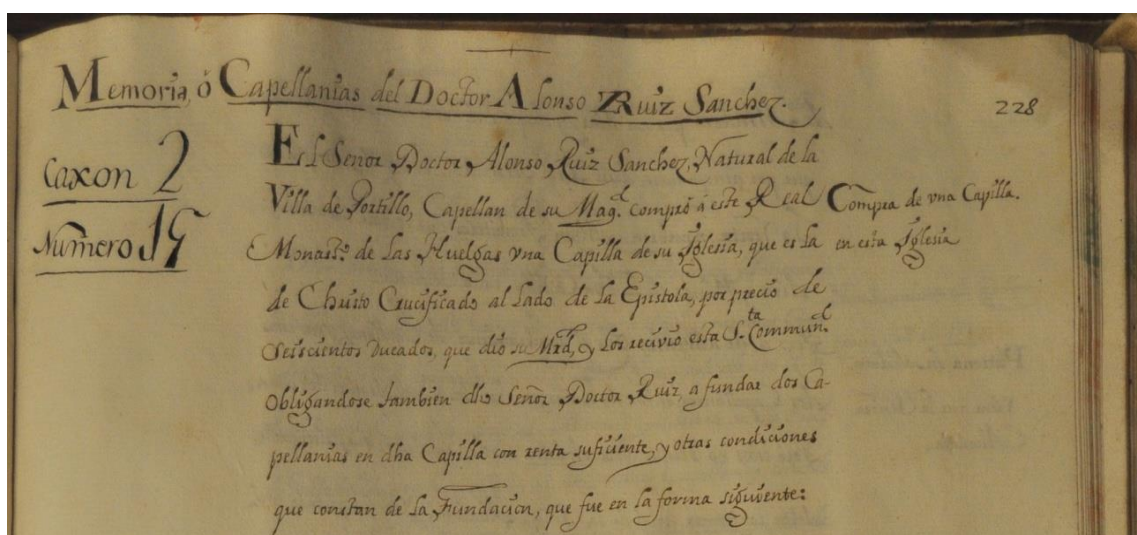 Memoria, ò Capellanias del Doctor Alonso Ruiz Sanchez.
228
Caxon 2
Numero 19
El Señor Doctor Alonso Ruiz Sanchez, Natural de la
Villa de Portillo, Capellan de su Mag.d compró á este Real
Monastº de Las Huelgas vna Capilla de su Iglesia, que es la
de Christo Crucificado al Lado de la Epistola, por precio de
Seiscientos Ducados, que dio su Mrd, y los recivio esta S.ta Commund
Obligandose tambien dho Señor Doctor Ruiz, a fundar dos Ca-
pellanias en dha Capilla con renta sufiziente, y otras condiciones
que constan de la Fundacion, que fue en la forma siguiente:
Compra de vna Capilla.
en esta Iglesia